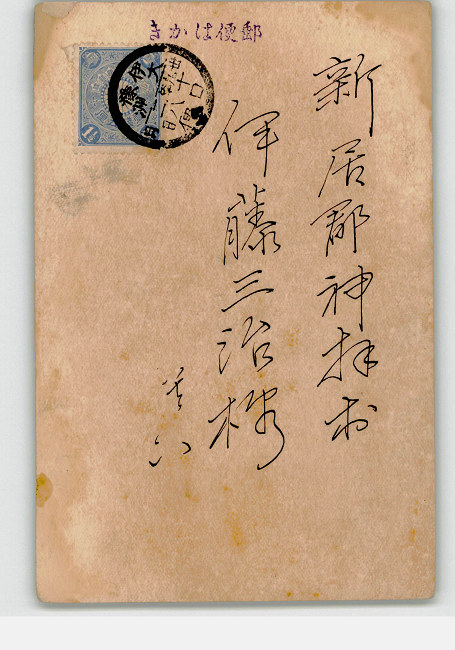 郵便はかき
新居郡神拝村
伊藤三治様